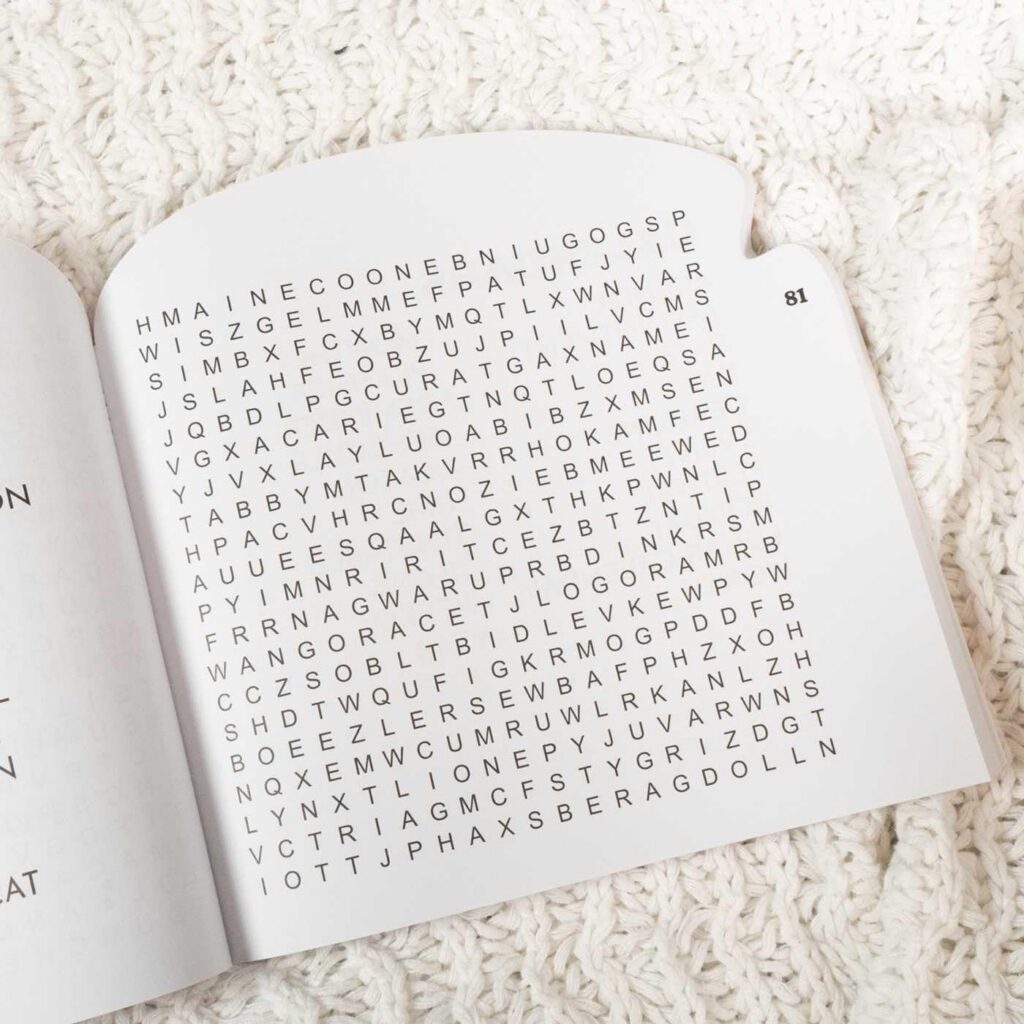 H M A I N E C O O N E B N I U G O G S P
W I S Z G E L M M E F P A T U F J Y I E
S I M B X F C X B Y M Q T L X W N V A R
J S L A H F E O B Z U J P I I L V C M S
J Q B D L P G C U R A T G A X N A M E I
V G X A C A R I E G T N Q T L O E Q S A
Y J V X L A Y L U O A B I B Z X M S E N
T A B B Y M T A K V R R H O K A M F E C
H P A C V H R C N O Z I E B M E E W E D
A U U E E S Q A A L G X T H K P W N L C
P Y I M N R I R I T C E Z B T Z N T I P
F R R N A G W A R U P R B D I N K R S M
W A N G O R A C E T J L O G O R A M R B
C C Z S O B L T B I D L E V K E W P Y W
S H D T W Q U F I G K R M O G P D D F B
B O E E Z L E R S E W B A F P H Z X O H
N Q X E M W C U M R U W L R K A N L Z H
L Y N X T L I O N E P Y J U V A R W N S
V C T R I A G M C F S T Y G R I Z D G T
I O T T J P H A X S B E R A G D O L L N
81